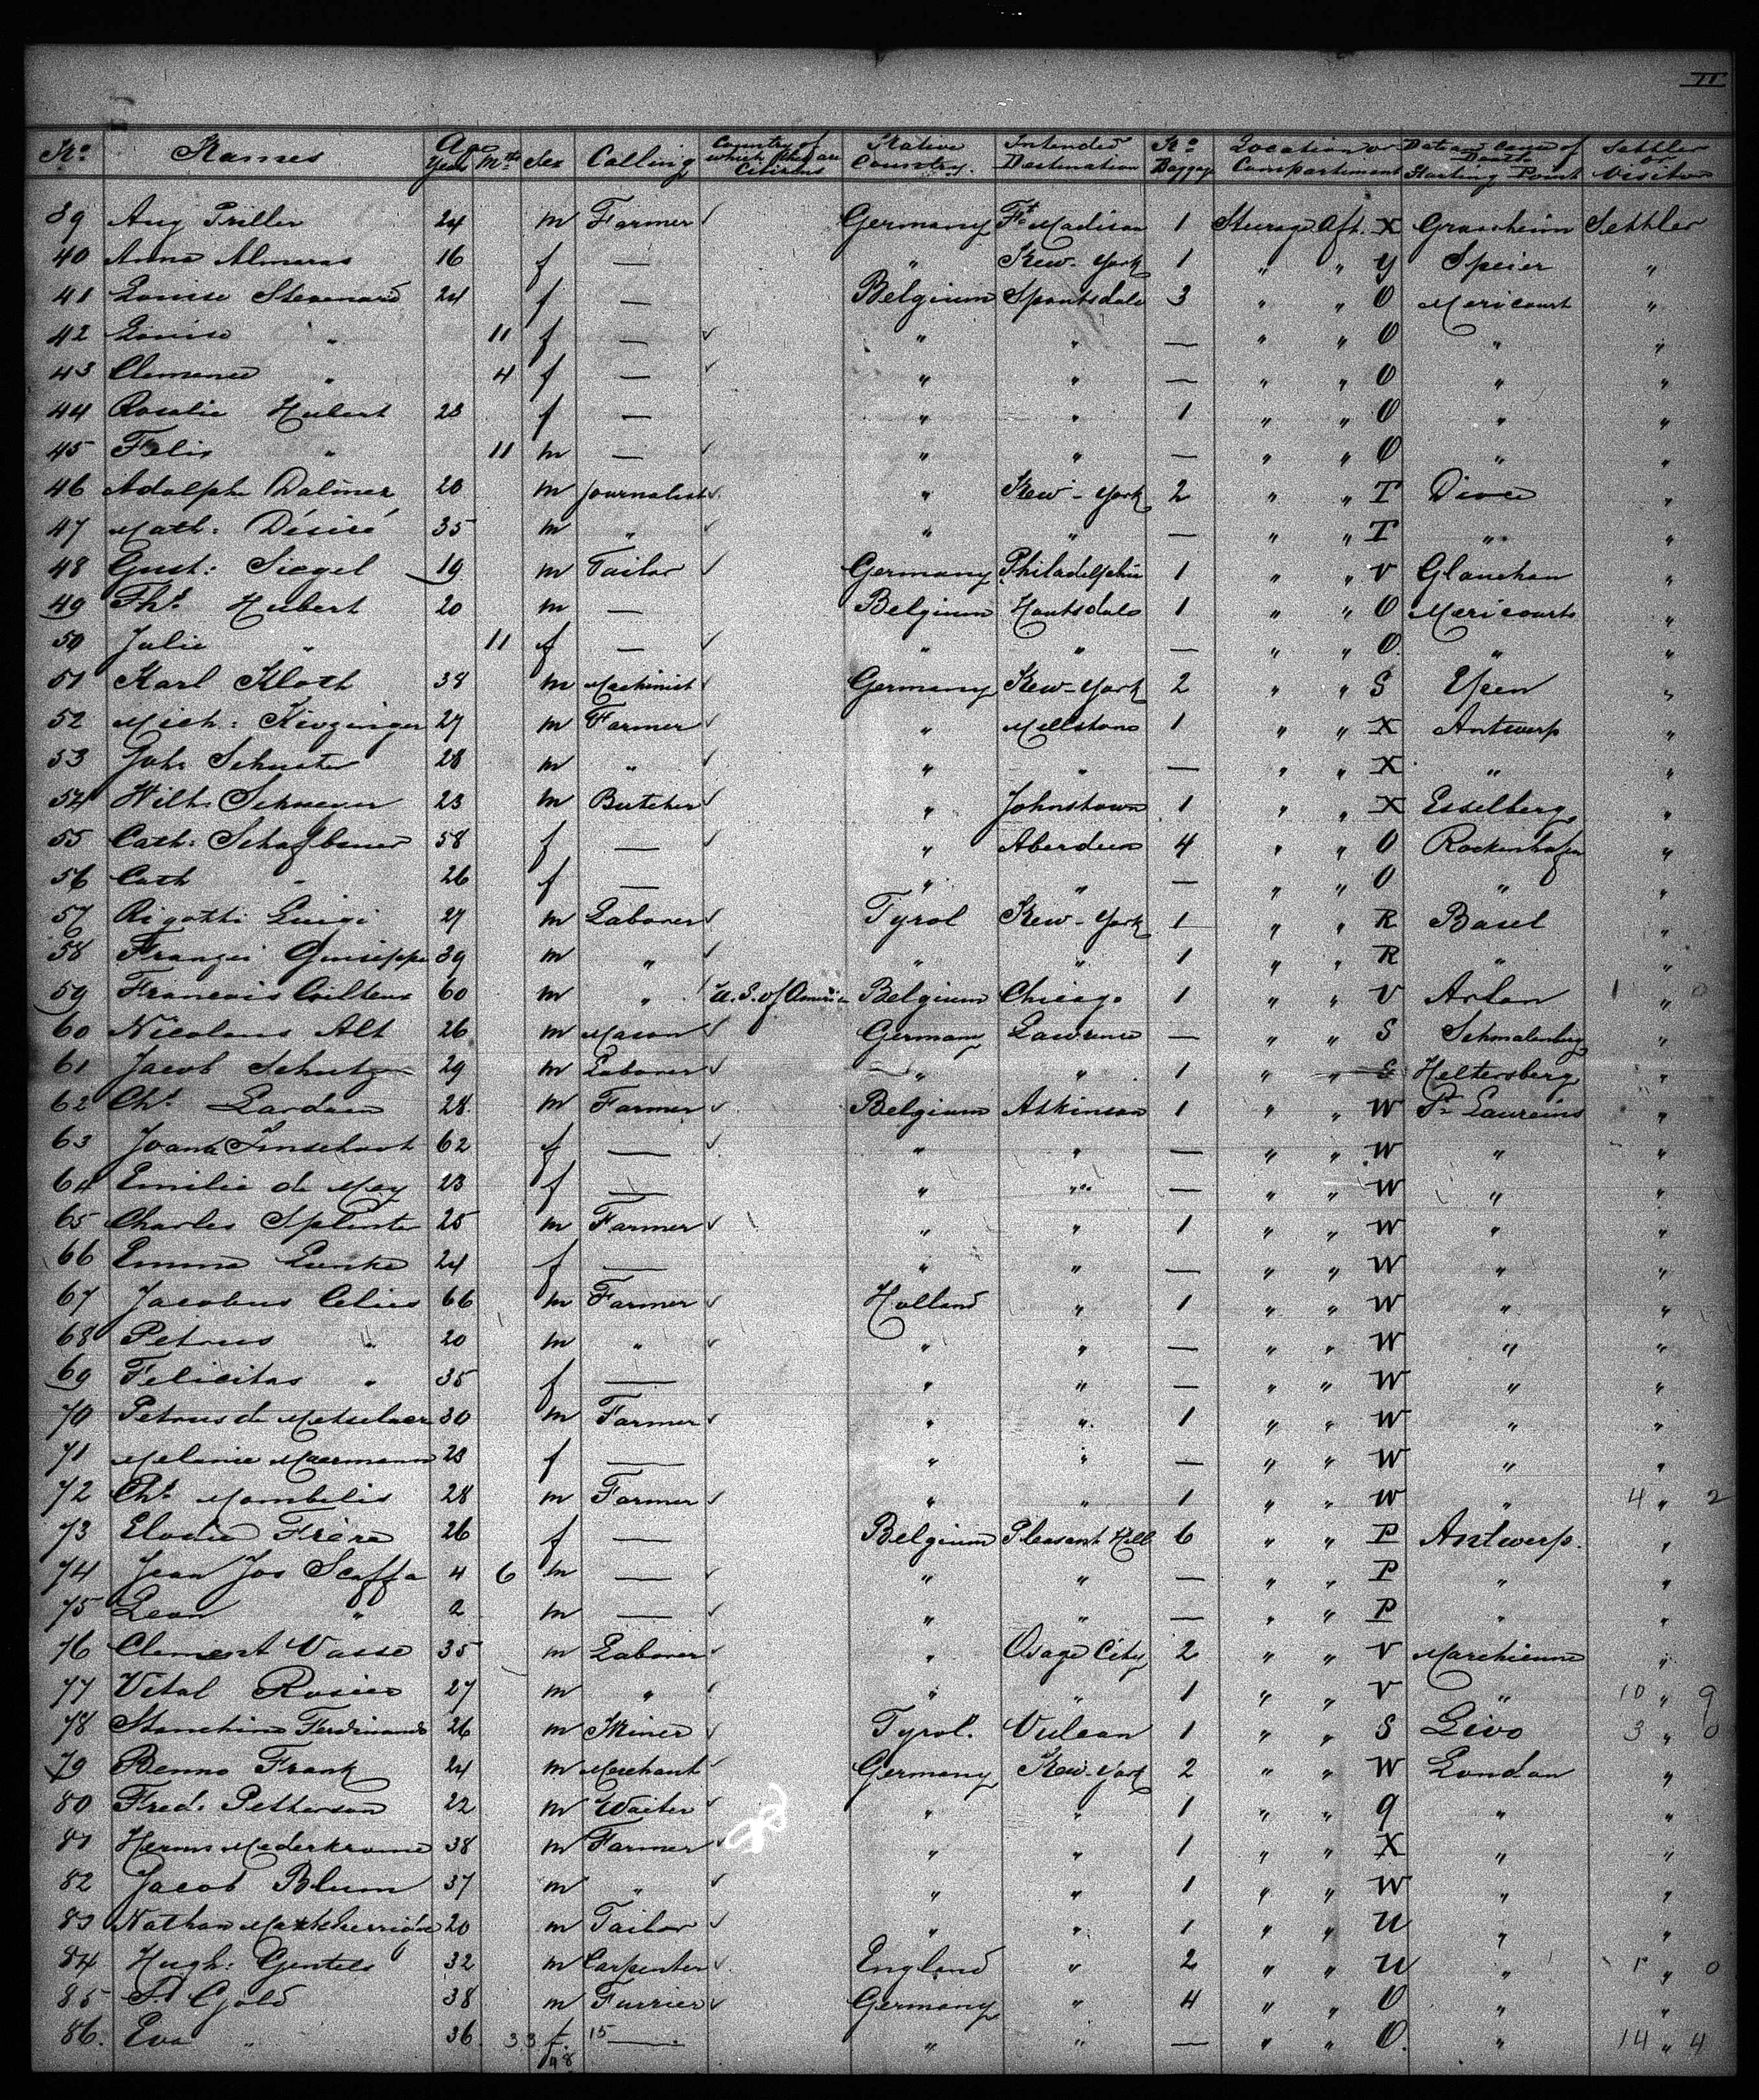 II
No. Names Age Years Mths Sex Calling Country of which they are Citizens Native Country. Intended Destination No. Baggage Location or Compartment Date and Cause of Death Starting Point Settler or Visitor
39 Aug Priller 24 m Farmer Germany Ft. Madison 1 Steerage Aft. X Settler
40 Anna Almaras 16 f — " New-York 1 " " Y Speier "
41 Louise Stevenard 24 f — Belgium 3 " " O Mericourt "
42 Louise " 11 f — " " — " " O " "
43 Clemence " 4 f — " " — " " O " "
44 Rosalie Hubert 23 f — " " 1 " " O " "
45 Felis " 11 m — " " — " " O " "
46 Adolphe Dalimer 20 m Journalist " New-York 2 " " T "
47 Math: Désiré 35 m " " " — " " T " "
48 Gust: Siegel 19 m Tailor Germany Philadelphia 1 " " V Glauchau "
49 Ths. Hubert 20 m — Belgium Houtsdale 1 " " O Mericourt "
50 Julie " 11 f — " " — " " O " "
51 Karl Kloth 38 m Machinist Germany New-York 2 " " S "
52 Mich: 27 m Farmer " Millstone 1 " " X Antwerp "
53 Joh. Schuster 28 m " " " — " " X " "
54 Wilh. 23 m Butcher " Johnstown 1 " " X Esselberg "
55 Cath: 58 f — " Aberdeen 4 " " O "
56 Cath " 26 f — " " — " " O " "
57 Rigotti Luigi 27 m Laborer Tyrol New-York 1 " " R Basel "
58 Franzei Guiseppe 39 m " " " 1 " " R " "
59 Francois 60 m " U.S. of America Belgium Chicago 1 " " V Arlon 1 " 0
60 Nicolaus Alt 26 m Mason Germany Lawrence — " " S Schmalenberg "
61 Jacob Schutz 29 m Laborer " " 1 " " S Heltersberg "
62 Chs. Lardaen 28 m Farmer Belgium Atkinson 1 " " W St. Laureins "
63 Joana 62 f — " " — " " W " "
64 Emilie de Mey 23 f — " " — " " W " "
65 Charles Splinte 25 m Farmer " " 1 " " W " "
66 Emma 24 f — " " — " " W " "
67 Jacobus Celies 66 m Farmer Holland " 1 " " W " "
68 Petrus " 20 m " " " — " " W " "
69 Felicitas " 35 f — " " — " " W " "
70 Petrus de Metselaer 30 m Farmer " " 1 " " W " "
71 Melanie Maermann 23 f — " " — " " W " "
72 Chs. Mombelis 28 m Farmer " " 1 " " W " 4 " 2
73 Elodie Frère 26 f — Belgium Pleasant Hill 6 " " P Antwerp. "
74 Jean Jos Scaffa 4 6 m — " " — " " P " "
75 Leon " 2 m — " " — " " P " "
76 Clement Vasse 35 m Laborer " Osage City 2 " " V Marchienne "
77 Vital Rosier 27 m " " " 1 " " V " 10 " 9
78 Stanchina Ferdinando 26 m Miner Tyrol. Vulcan 1 " " S Livo 3 " 0
79 Benno Frank 24 m Merchant Germany New-York 2 " " W London "
80 Fred. Petterson 22 m Waiter " " 1 " " q " "
81 Herm: Mederkrome 38 m Farmer " " 1 " " X " "
82 Jacob Blum 37 m " " " 1 " " W " "
83 Nathan 20 m Tailor " " 1 " " U " "
84 Hugh: Gentels 32 m Carpenter England " 2 " " U " 1 " 0
85 Gold 38 m Furrier Germany " 4 " " O " "
86. Eva " 36. 33 f. 15 — " " — " " O. " 14 " 4
98